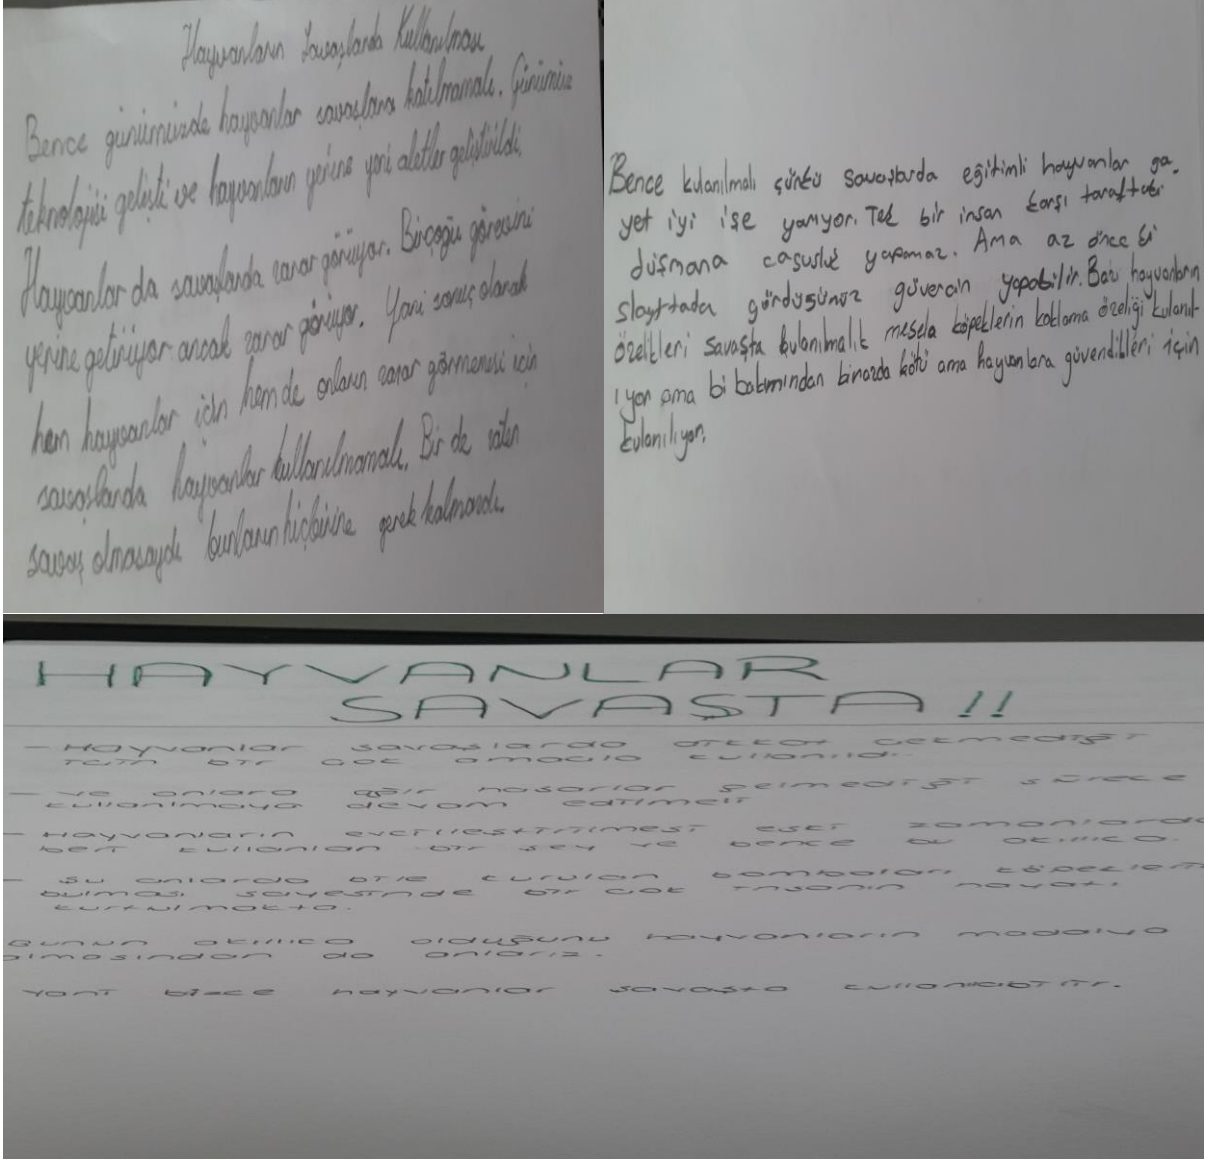 Hayvanların Savaşlarda Kullanılması
Bence günümüzde hayvanlar savaşlara katılmamalı. Günümüz
teknolojisi gelişti ve hayvanların yerine yeni aletler geliştirildi.
Hayvanlar da savaşlarda zarar görüyor. Birçoğu görevini
yerine getiriyor ancak zarar görüyor. Yani sonuç olarak
hem hayvanlar için hem de onların zarar görmemesi için
savaşlarda hayvanlar kullanılmamalı. Bir de zaten
savaş olmasaydı bunların hiçbirine gerek kalmazdı.
Bence kulanılmalı çünkü savaşlarda eğitimli hayvanlar ga-
yet iyi işe yarıyor. Tek bir insan karşı taraftaki
düşmana casusluk yapamaz. Ama az önce ki
slayttada gördüğünüz güvercin yapabilir. Bazı hayvanların
özelikleri savaşta kulanılmalık mesela köpeklerin koklama özeliği kulanıl-
ıyor ama bi bakımından birazda kötü ama hayvanlara güvendikleri için
kulanılıyor.
HAYVANLAR
SAVAŞTA !!
- Hayvanlar savaşlarda dikkat çekmediği
için bir çok amaçla kullanıldı.
- ve onlara ağır hasarlar gelmediği sürece
kullanılmaya devam edilmeli
- Hayvanların evcilleştirilmesi eski zamanlarda
beri kullanılan bir şey ve bence bu akıllıca.
- Şu anlarda bile kurulan bombaları köpeklerin
bulması sayesinde bir çok insanın hayatı
kurtulmakta.
Bunun akıllıca olduğunu hayvanların madalya
almasından da anlarız.
Yani bizce hayvanlar savaşta kullanılabilir.